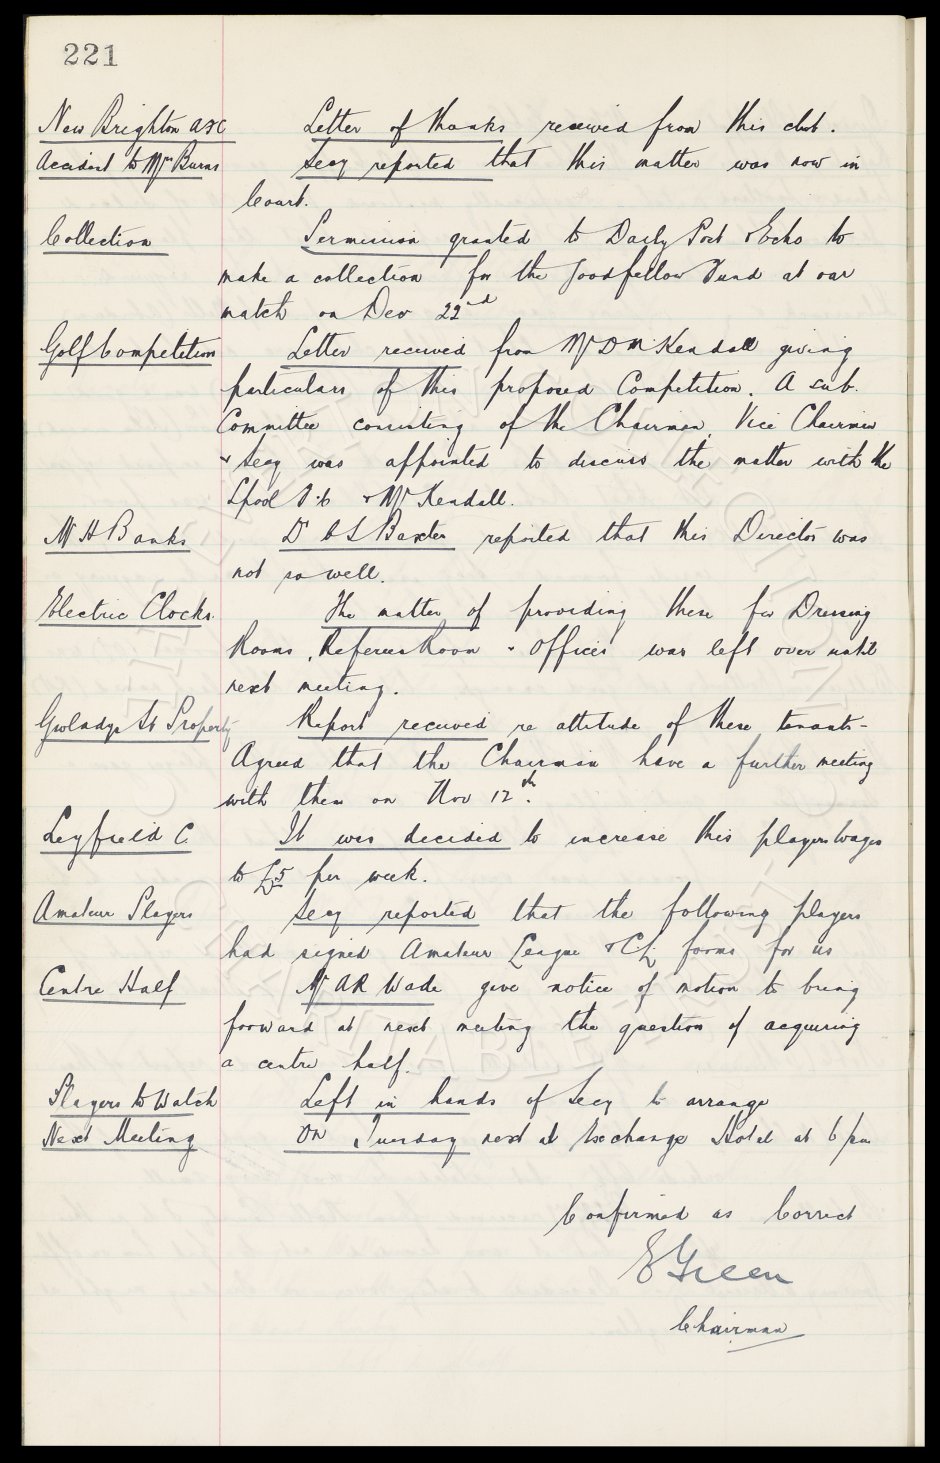 221
New Brighton AFC Letter of thanks received from this club.
Accident to Mr Burns Secy reported that this matter was now in
Court.
Collection Permission granted to Daily Post & Echo to
make a collection for the Goodfellow Fund at our
match on Dec 22nd
Golf Competition Letter received from Mr D M Kendall giving
particulars of this proposed Competition. A sub.
Committee consisting of the Chairman, Vice Chairman
& Secy was appointed to discuss the matter with the
Lpool F.C & Mr Kendall.
Mr H Banks Dr C S Baxter reported that this Director was
not so well.
Electric Clocks. The matter of providing these for Dressing
Rooms, Referees Room & Offices was left over until
next meeting.
Gwladys St Property Report received re attitude of these tenants-
Agreed that the Chairman have a further meeting
with them on Nov 12th.
Leyfield C. It was decided to increase this players Wages
to £5 per week.
Amateur Players Secy reported that the following players
had signed Amateur League & C/L forms for us
Centre Half Mr A R Wade give notice of motion to bring
forward at next meeting the question of acquiring
a centre half.
Players to Watch Left in hands of Secy to arrange
Next Meeting On Tuesday next at Exchange Hotel at 6 pm
Confirmed as Correct
E Green
Chairman